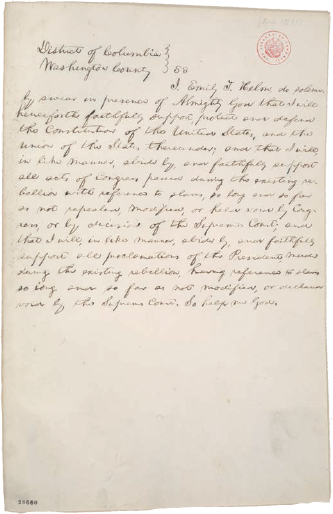 District of Columbia }
Washington County } SS
I, Emily T. Helm do solemn
ly swear in presence of Almighty God that I will
henceforth faithfully support, protect and defend
the Constitution of the United States, and the
union of the States thereunder, and that I will,
in like manner, abide by, and faithfully support
all acts of Congress passed during the existing re-
bellion with reference to slaves, so long and so far
as not repealed, modified, or held void by Cong-
ress, or by decision of the Supreme Court; and
that I will, in like manner, abide by, and faithfully
support all proclamations of the President made
during the existing rebellion, having reference to slaves
so long and so far as not modified, or declared
void by the Supreme Court. So help me God.